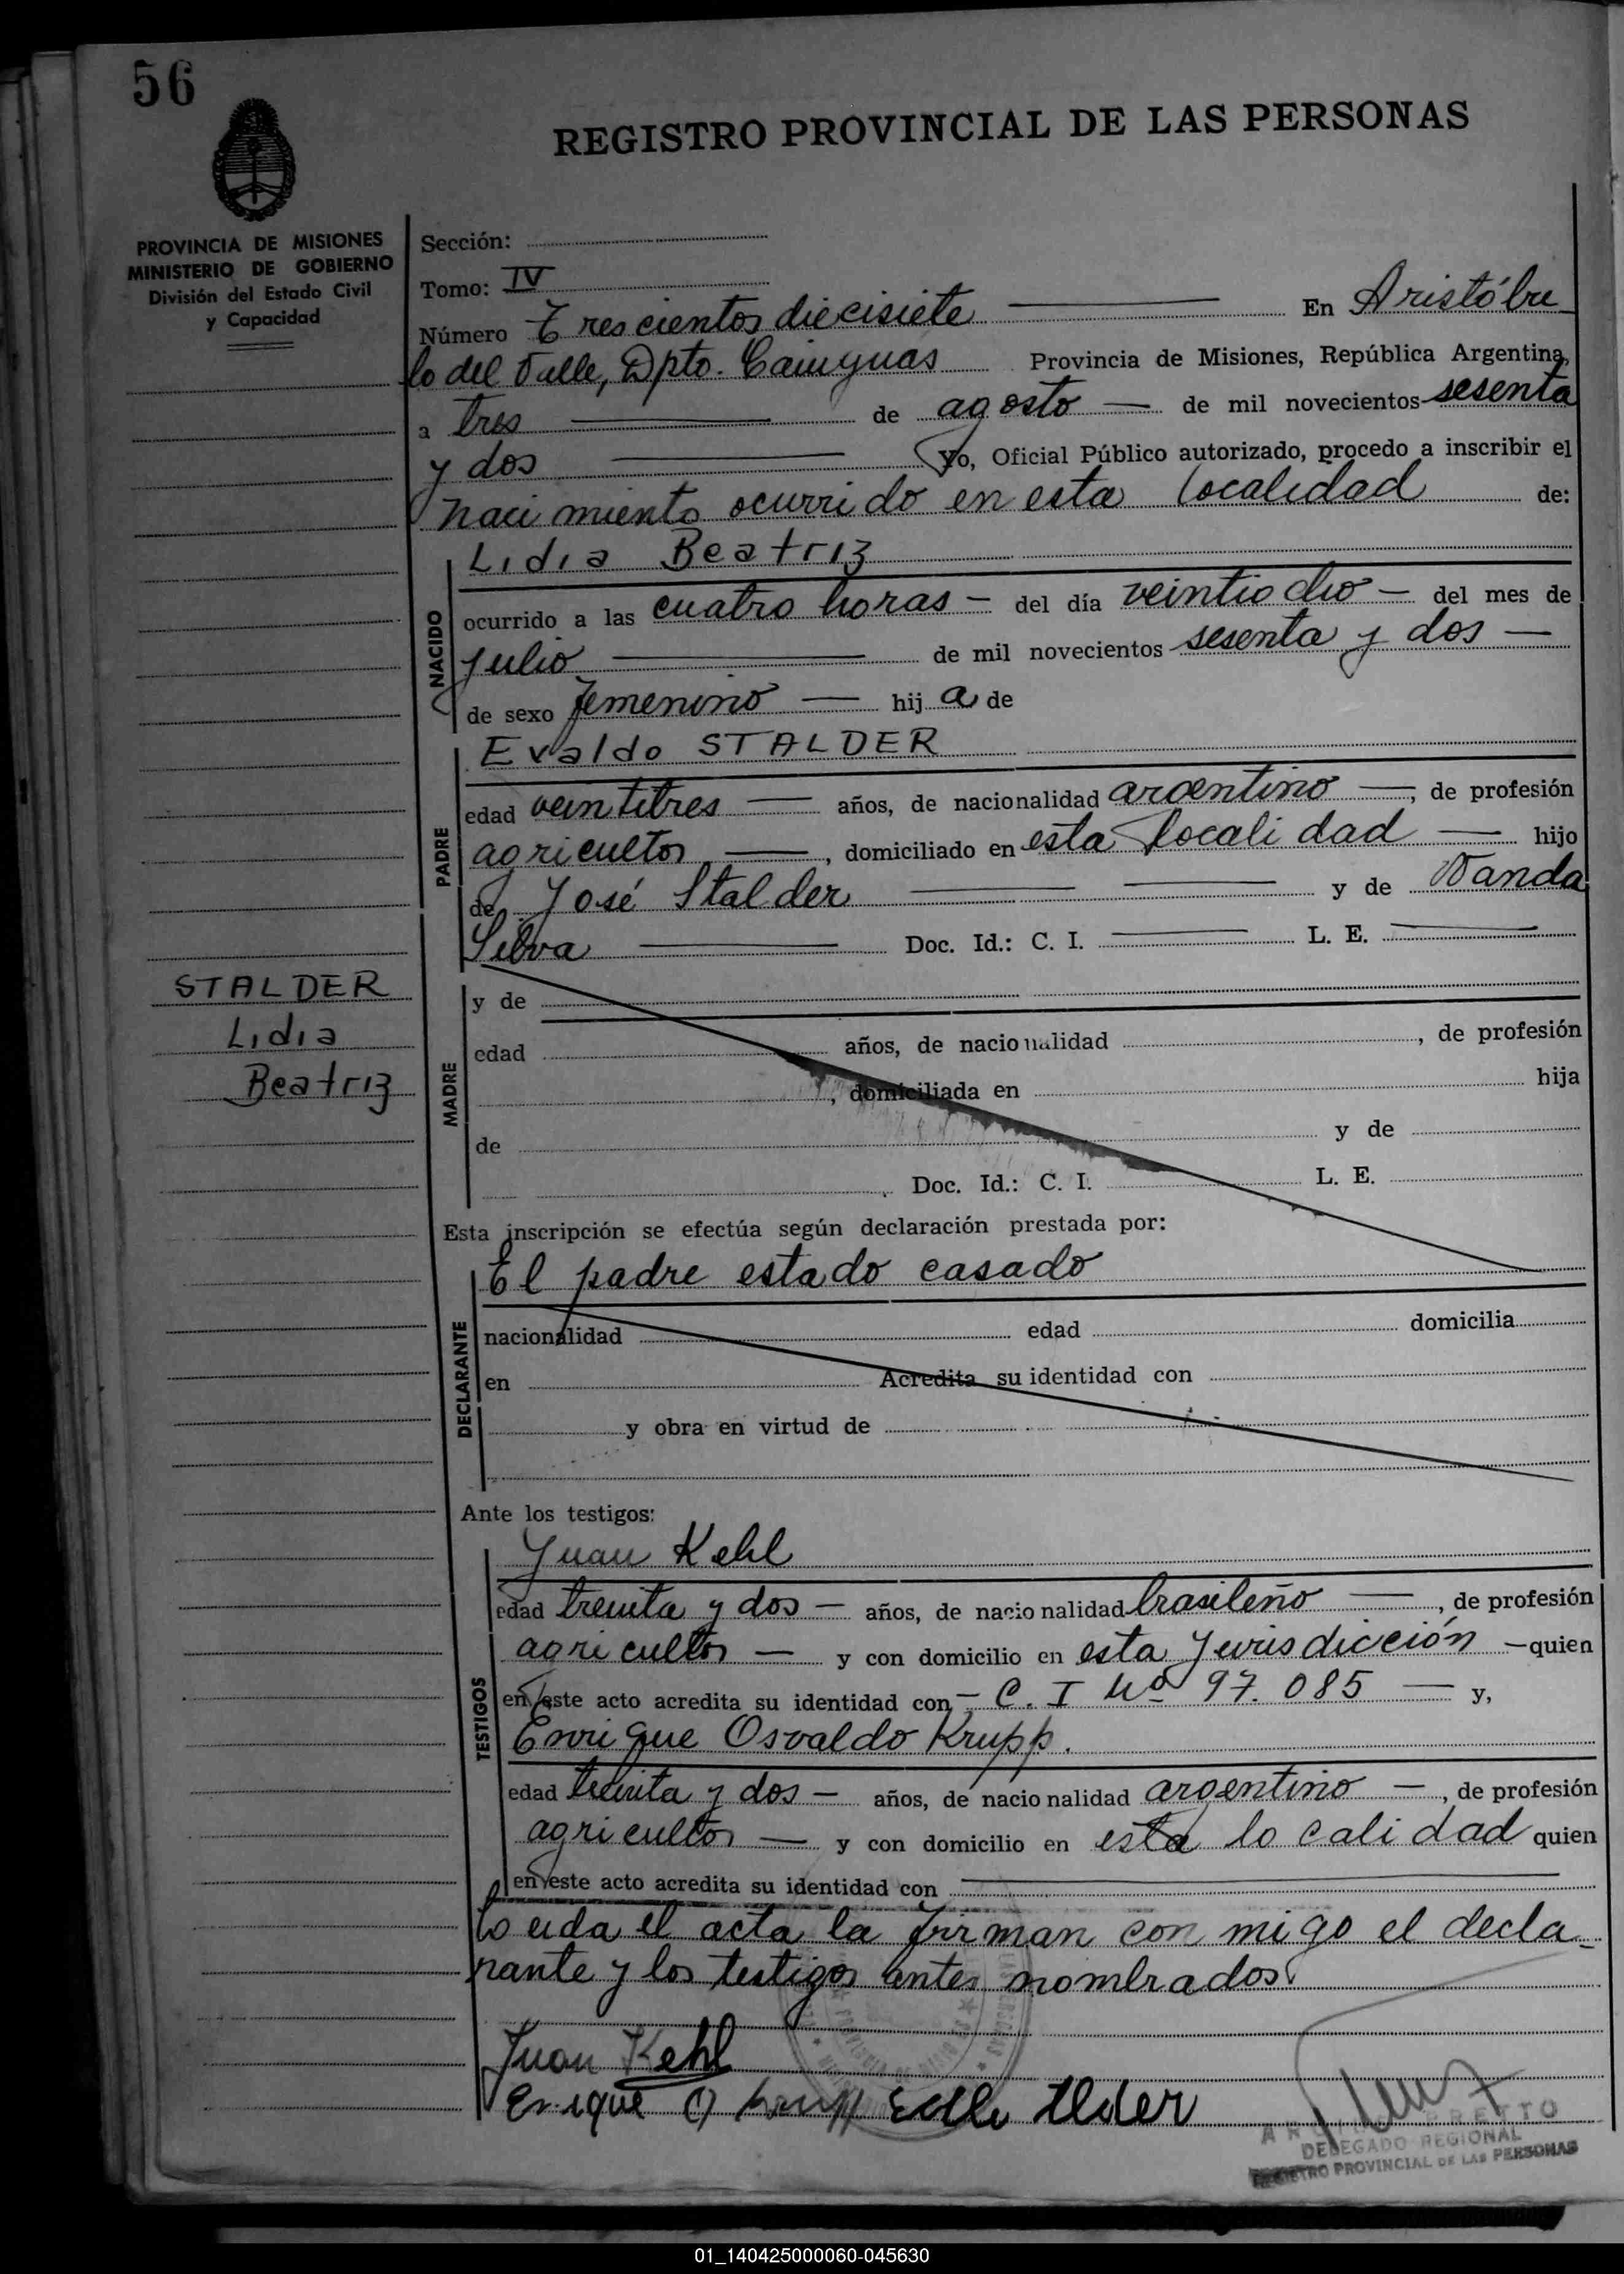 56
REGISTRO PROVINCIAL DE LAS PERSONAS
PROVINCIA DE MISIONES
MINISTERIO DE GOBIERNO
División del Estado Civil
y Capacidad
Sección:
Tomo: IV
Número Trescientos diecisiete En Aristóbu
lo del Valle, Dpto. Cainguas Provincia de Misiones, República Argentina,
a tres de agosto de mil novecientos sesenta
y dos Yo, Oficial Público autorizado, procedo a inscribir el
nacimiento ocurrido en esta localidad de:
Lidia Beatriz
NACIDO
ocurrido a las cuatro horas - del día veintiocho - del mes de
julio de mil novecientos sesenta y dos -
de sexo femenino - hij a de
Evaldo STALDER
PADRE
edad veintitres - años, de nacionalidad argentino -, de profesión
agricultor -, domiciliado en esta localidad - hijo
de José Stalder y de Wanda
Silva Doc. Id.: C. I. L. E.
STALDER
Lidia
Beatriz
MADRE
y de
edad años, de nacionalidad , de profesión
, domiciliada en hija
de y de
Doc. Id.: C. I. L. E.
Esta inscripción se efectúa según declaración prestada por:
El padre estado casado
DECLARANTE
nacionalidad edad domicilia
en Acredita su identidad con
y obra en virtud de
Ante los testigos:
Juan Kehl
TESTIGOS
edad treinta y dos - años, de nacionalidad brasileño -, de profesión
agricultor - y con domicilio en esta Jurisdicción - quien
en este acto acredita su identidad con - C. I Nº 97.085 - y,
Enrique Osvaldo Krupp.
edad treinta y dos - años, de nacionalidad argentino -, de profesión
agricultor - y con domicilio en esta localidad quien
en este acto acredita su identidad con
Leida el acta la firman con migo el decla-
rante y los testigos antes nombrados
Juan Kehl
Enrique O Krupp
DELEGADO REGIONAL
REGISTRO PROVINCIAL DE LAS PERSONAS
01_140425000060-045630